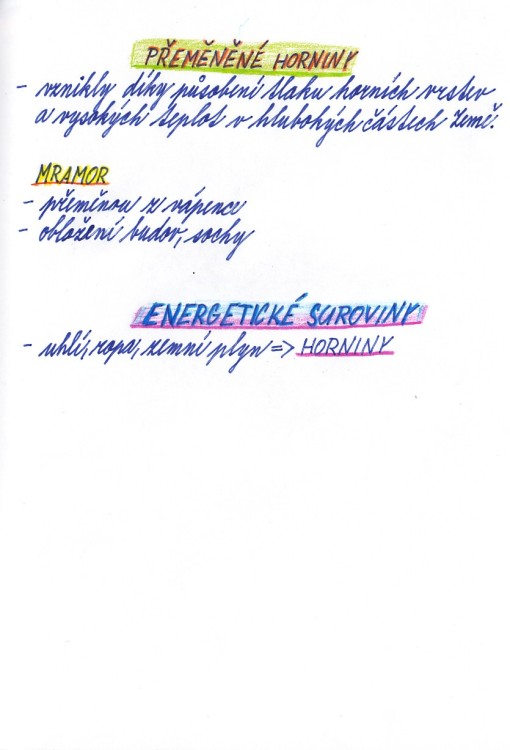 PŘEMĚNĚNÉ HORNINY
- vznikly díky působení tlaku horních vrstev
a vysokých teplot v hlubokých částech Země.
MRAMOR
- přeměnou z vápence
- obložení budov, sochy
ENERGETICKÉ SUROVINY
- uhlí, ropa, zemní plyn => HORNINY